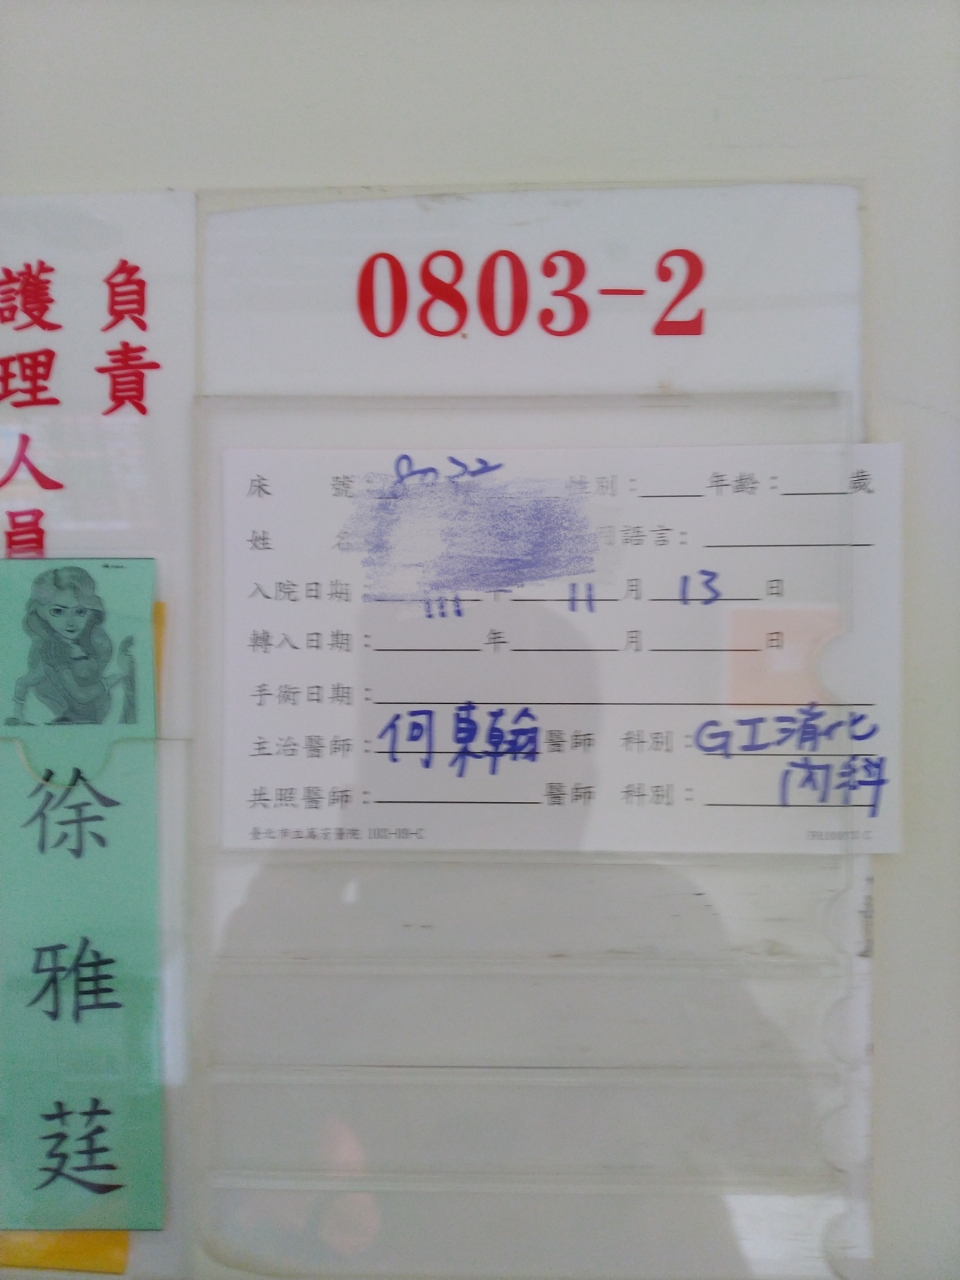 負責
護理人員
0803-2
床號：8032 性別：年齡：歲
姓名 語言：
入院日期：111年11月13日
轉入日期：年月日
手術日期：
主治醫師：何東翰醫師 科別：GI消化
內科
共照醫師：醫師 科別：
臺北市立萬芳醫院
徐雅莛